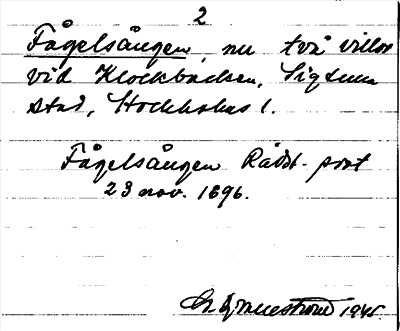 2
Fågelsången, nu två villor
vid Klockbacken, Sigtuna
stad, Stockholms l.
Fågelsången Rådst. prot
23 nov. 1696.
1945.